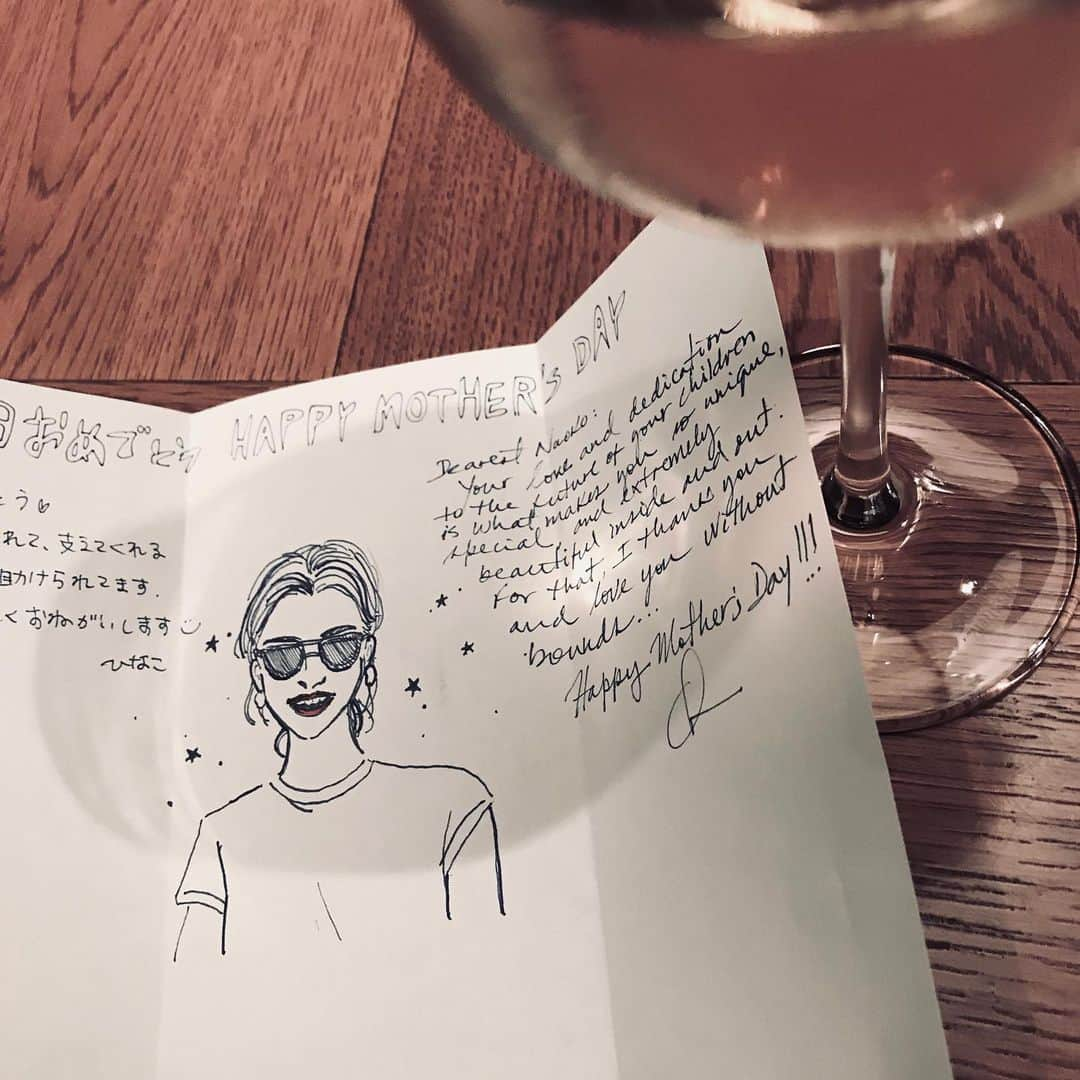 日おめでとう HAPPY MOTHER's DAY
とう♡
れて、支えてくれる
かけられてます.
くおねがいします
ひなこ
Dearest Naoko:
Your love and dedication
to the future of your children
is what makes you so unique,
special and extremely
beautiful inside and out.
For that, I thank you
and love you without
bounds...
Happy Mother's Day!!!